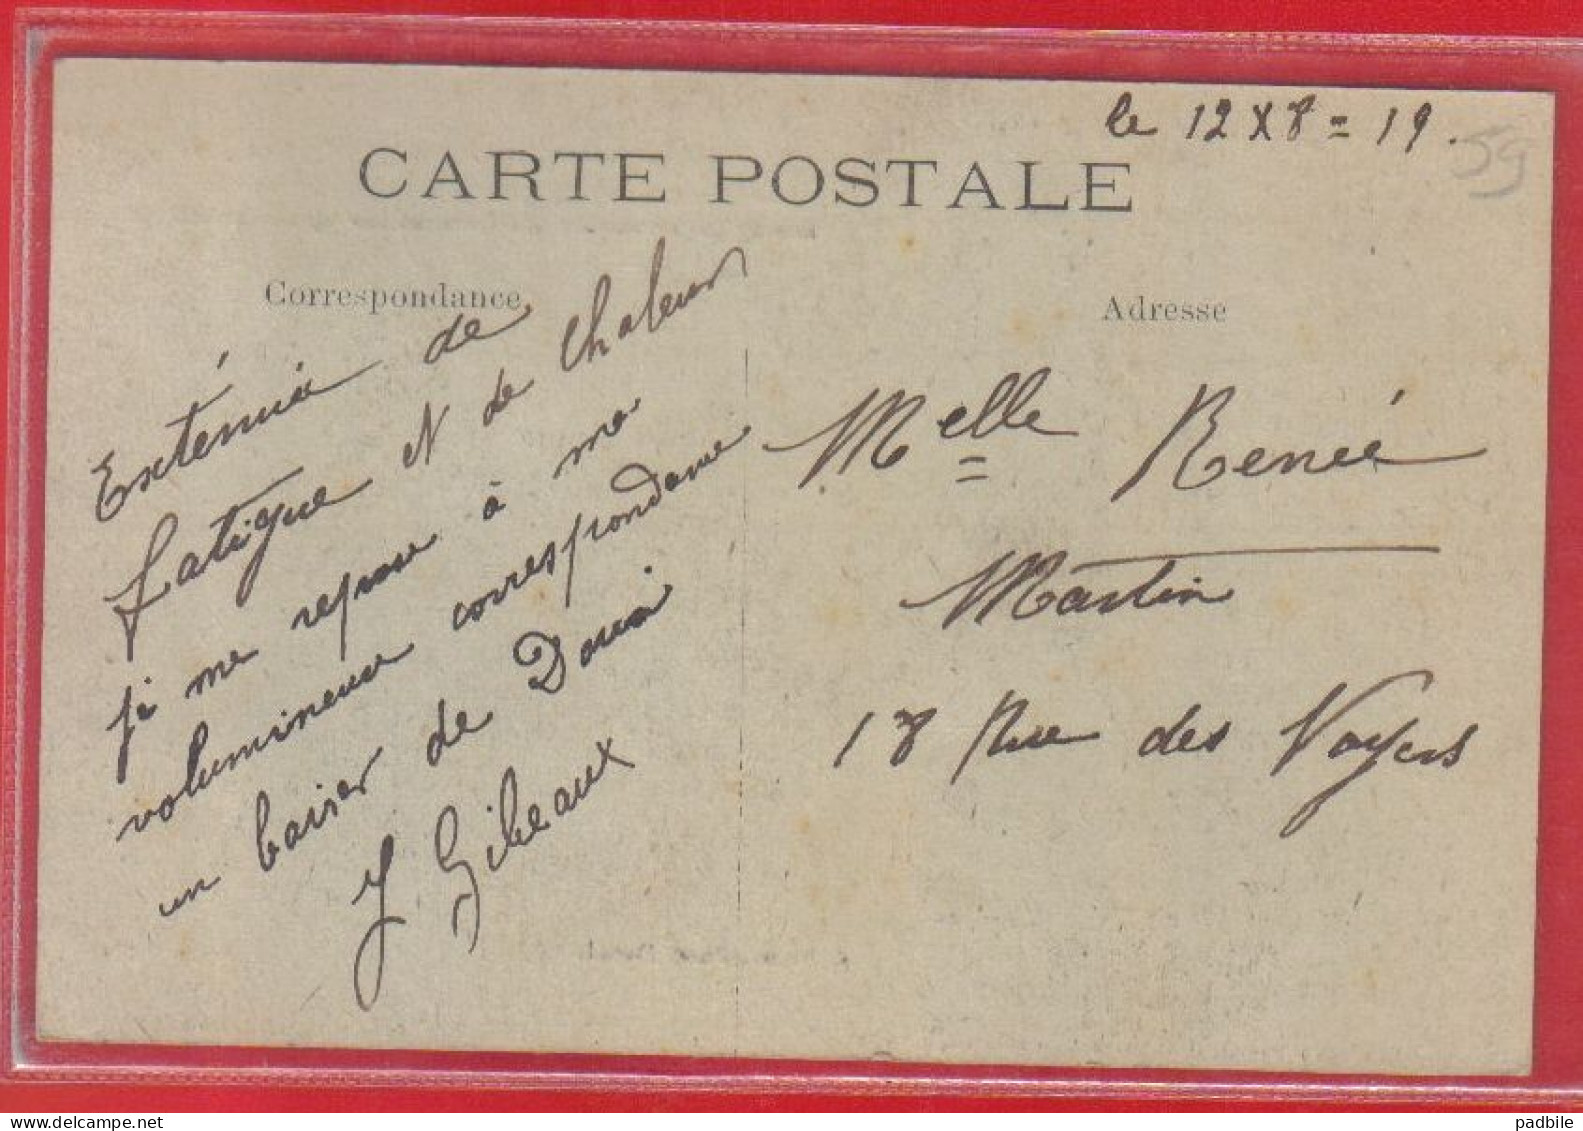 le 12 X 8 = 19.
59
CARTE POSTALE
Correspondance
Exténué de
fatigue et de chaleur
je me repose à ma
volumineuse correspondance
un baiser de Douai
J Gibeaux
Adresse
Melle Renée
Martin
18 Rue des Voyers
padbile